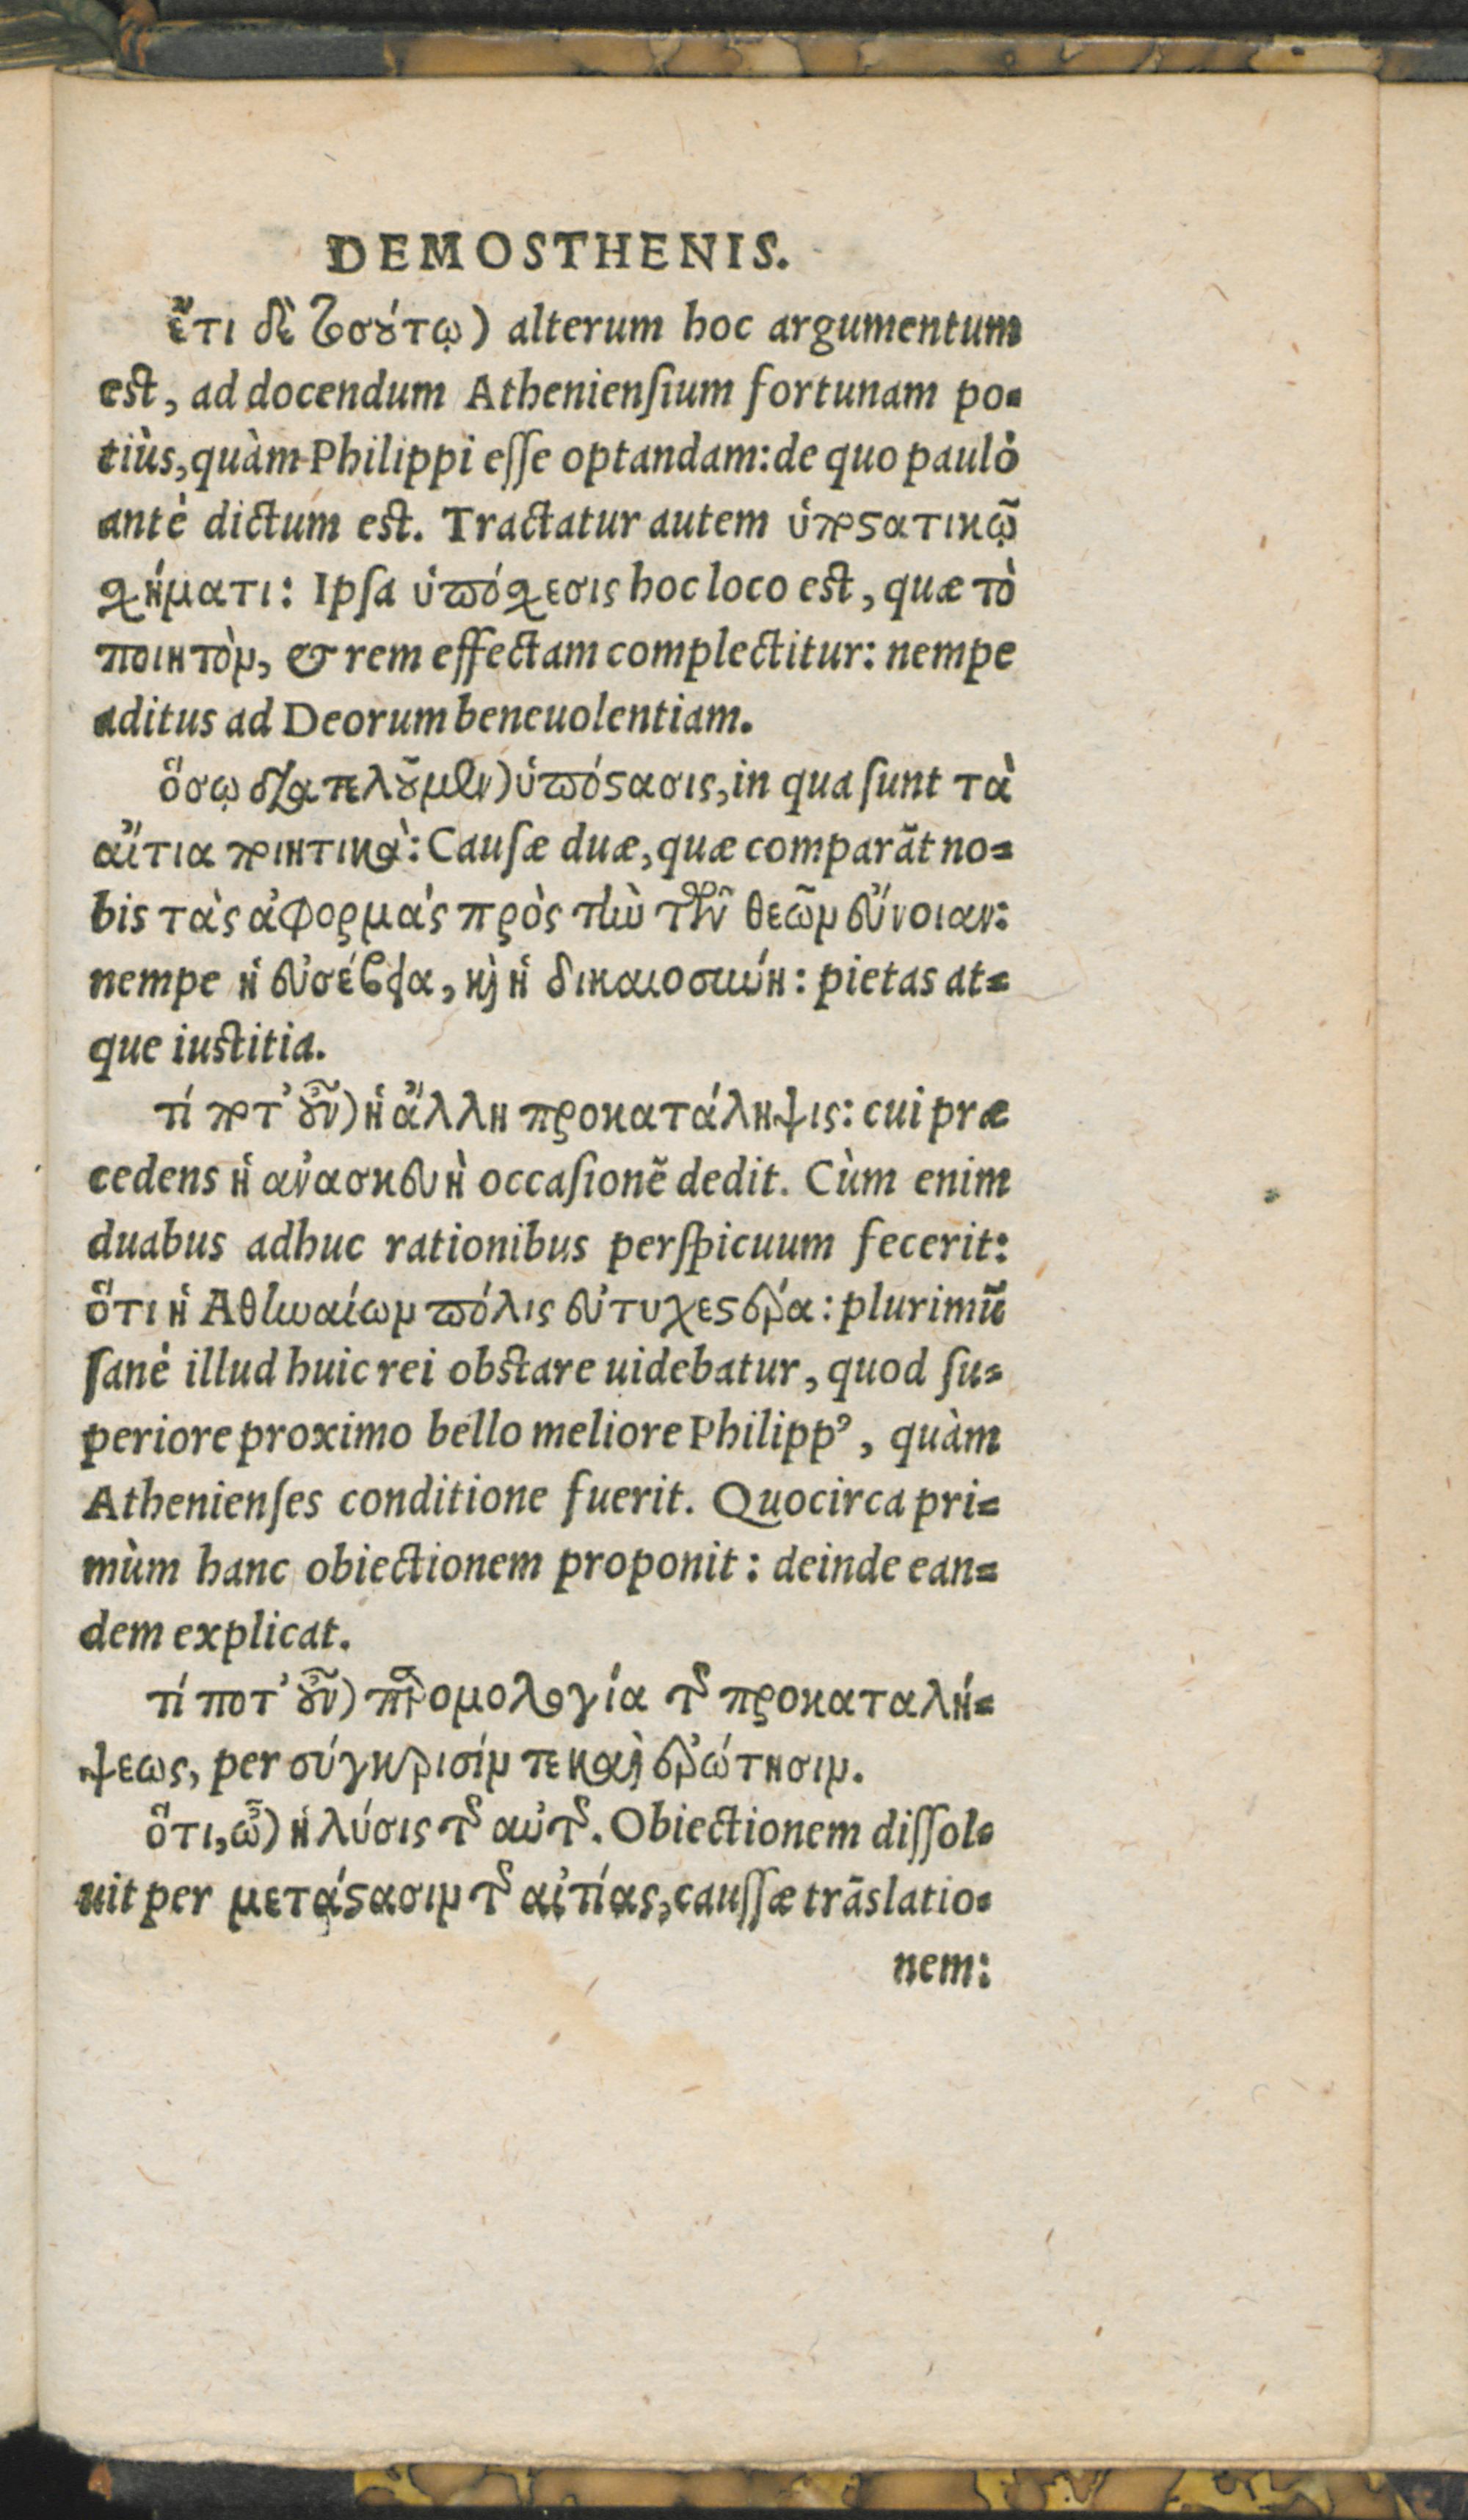 DEMOSTHENIS.
ἔτι δὲ τοσούτῳ) alterum hoc argumentum
est, ad docendum Atheniensium fortunam po-
tiùs, quàm Philippi esse optandam: de quo paulò
antè dictum est. Tractatur autem ὑποστατικῷ
σχήματι: Ipsa ὑπόσχεσις hoc loco est, quæ τὸ
ποιητὸν, & rem effectam complectitur: nempe
aditus ad Deorum beneuolentiam.
ὅσῳ διατελοῦμεν) ὑπόστασις, in qua sunt τὰ
αἴτια ποιητικὰ: Causæ duæ, quæ comparāt no-
bis τὰς ἀφορμάς πρὸς τὴν τῶν θεῶν εὔνοιαν:
nempe ἡ εὐσέβεια, καὶ ἡ δικαιοσύνη: pietas at-
que iustitia.
τί ποτ’ οὖν) ἡ ἄλλη προκατάληψις: cui præ
cedens ἡ ἀνασκευὴ occasionē dedit. Cùm enim
duabus adhuc rationibus perspicuum fecerit:
ὅτι ἡ Αθηναίων πόλις εὐτυχεστέρα: plurimū
sanè illud huic rei obstare uidebatur, quod su-
periore proximo bello meliore Philippꝰ, quàm
Athenienses conditione fuerit. Quocirca pri-
mùm hanc obiectionem proponit: deinde ean-
dem explicat.
τί ποτ’ οὖν) προομολογία τῆς προκαταλή-
ψεως, per σύγκρισίν τε καὶ ἐρώτησιν.
ὅτι, ὦ) ἡ λύσις τῆς αὐτῆς. Obiectionem dissol-
uit per μετάστασιν τῆς αἰτίας, caussæ trāslatio-
nem: